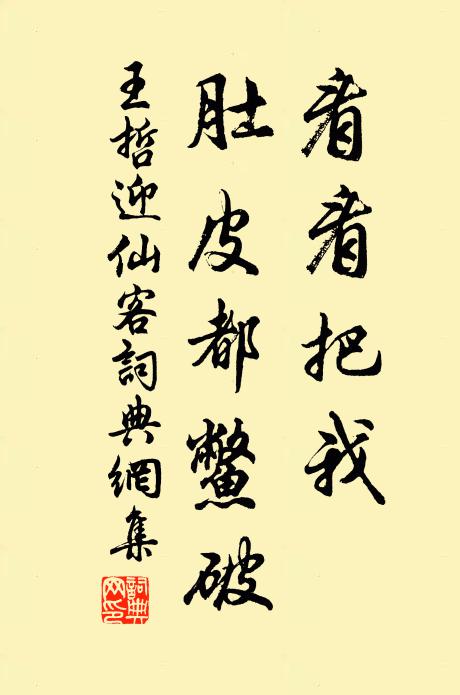 看看把我
肚皮都鱉破
王哲迎仙客詞典網集
詞典網印